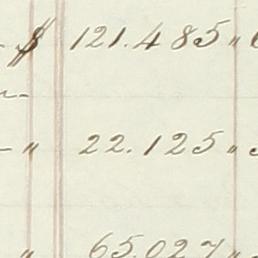 $ 121.485 "
" 22.125 "
" 65.027 "